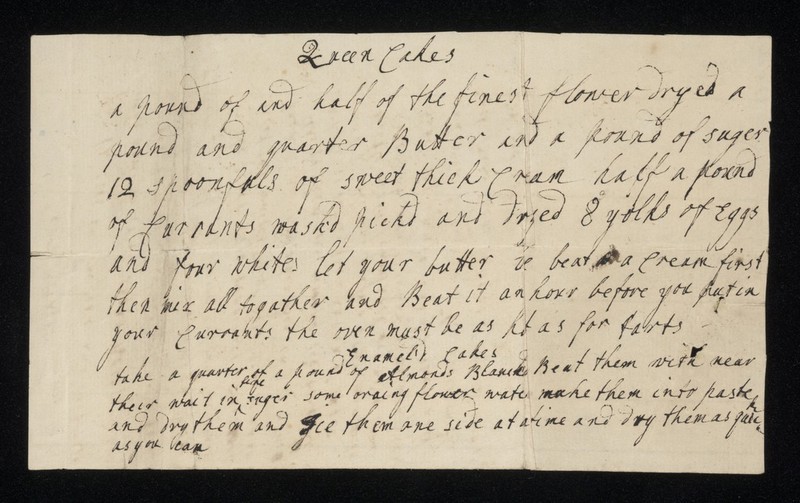 Queen Cakes
a pound of and half of the finest flower dryed a
pound and quarter Butter and a pound of suger
12 spoonfuls of sweet thick Cram half a pound
of Currants washd pickd and dryed 8 yolks of Eggs
and four whites let your butter be beat a Cream first
then mix all togather and Beat it an hour before you put in
your Currants the oven must be as hot as for tarts
Enameld Cakes
take a quarter of a pound of Almonds Blanch Beat them with near
their wait in suger some oraing flower water make them into paste
and dry them and Jce them one side at a time and dry them as
as you can